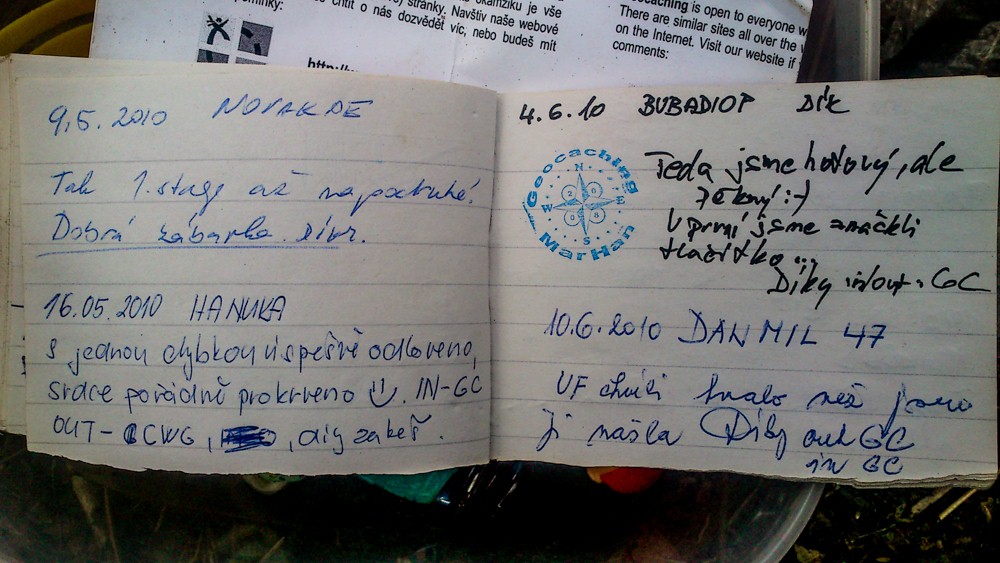 mínky:
chtít o nás dozvědět víc, nebo budeš mít
stránky. Navštiv naše webové
okamžiku je vše
http://
ocaching is open to everyone
There are similar sites all over the
on the Internet. Visit our website if
comments:
9.5. 2010 NOVAK DE
Tak 1. stage až napodruhé.
Dobrá zábavka. Díky.
16.05.2010 HANUKA
S jednou chybkou úspěšně odloveno,
srdce pořádně prokrveno. IN-GC
OUT- CWG, , díky za keš.
4.6.10 BUBADIOP DÍK
Geocaching
N
W E
S
MarHan
Teda jsme hotový, ale
pěkný :-)
V první jsme zmáčkli
tlačítko...
Díky in/out GC
10.6.2010 DANMIL 47
UF chvíli trvalo než jsme
ji našla Díky out GC
in GC